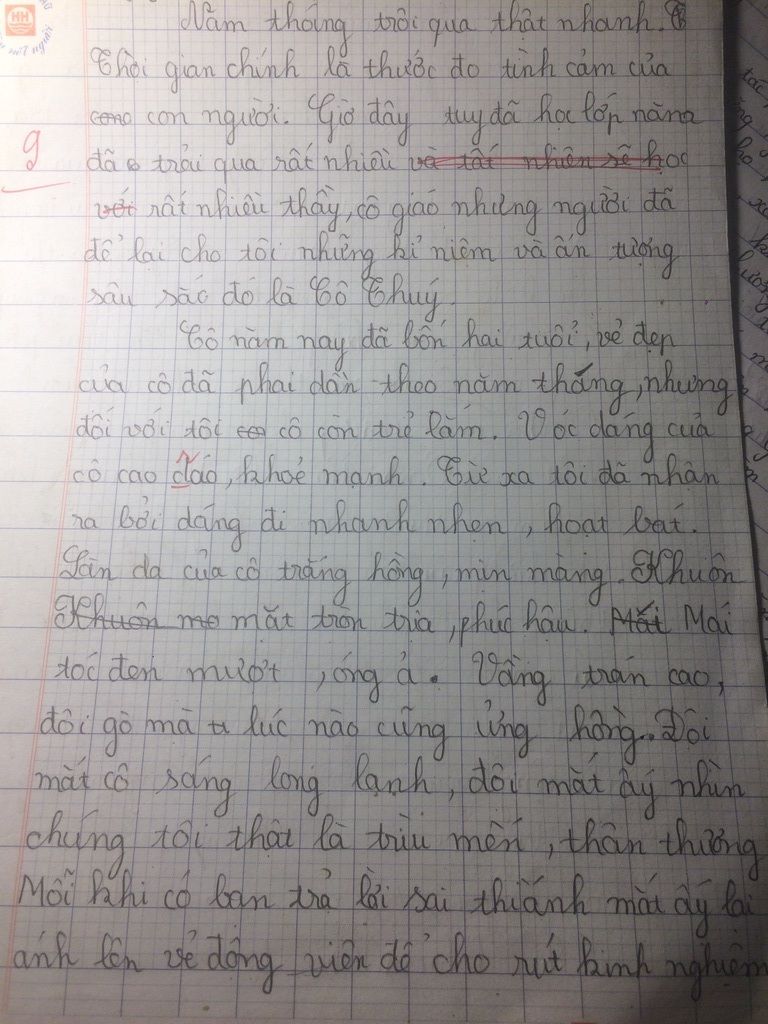 Năm tháng trôi qua thật nhanh.
Thời gian chính là thước đo tình cảm của
con người. Giờ đây tuy đã học lớp năm
đã trải qua rất nhiều và tất nhiên sẽ học
với rất nhiều thầy, cô giáo nhưng người đã
để lại cho tôi những kỉ niệm và ấn tượng
sâu sắc đó là Cô Thuý.
9
Cô năm nay đã bốn hai tuổi, vẻ đẹp
của cô đã phai dần theo năm tháng, nhưng
đối với tôi cô còn trẻ lắm. Vóc dáng của
cô cao dáo, khoẻ mạnh. Từ xa tôi đã nhận
ra bởi dáng đi nhanh nhẹn, hoạt bát.
Làn da của cô trắng hồng, mịn màng. Khuôn
Khuôn mặt tròn trĩa, phúc hậu. Mắt Mái
tóc đen mượt, óng ả. Vầng trán cao,
đôi gò má lúc nào cũng ửng hồng. Đôi
mắt cô sáng long lạnh, đôi mắt ấy nhìn
chúng tôi thật là trìu mến, thân thương
Mỗi khi có bạn trả lời sai thì ánh mắt ấy lại
ánh lên vẻ động viên để cho rút kinh nghiệm